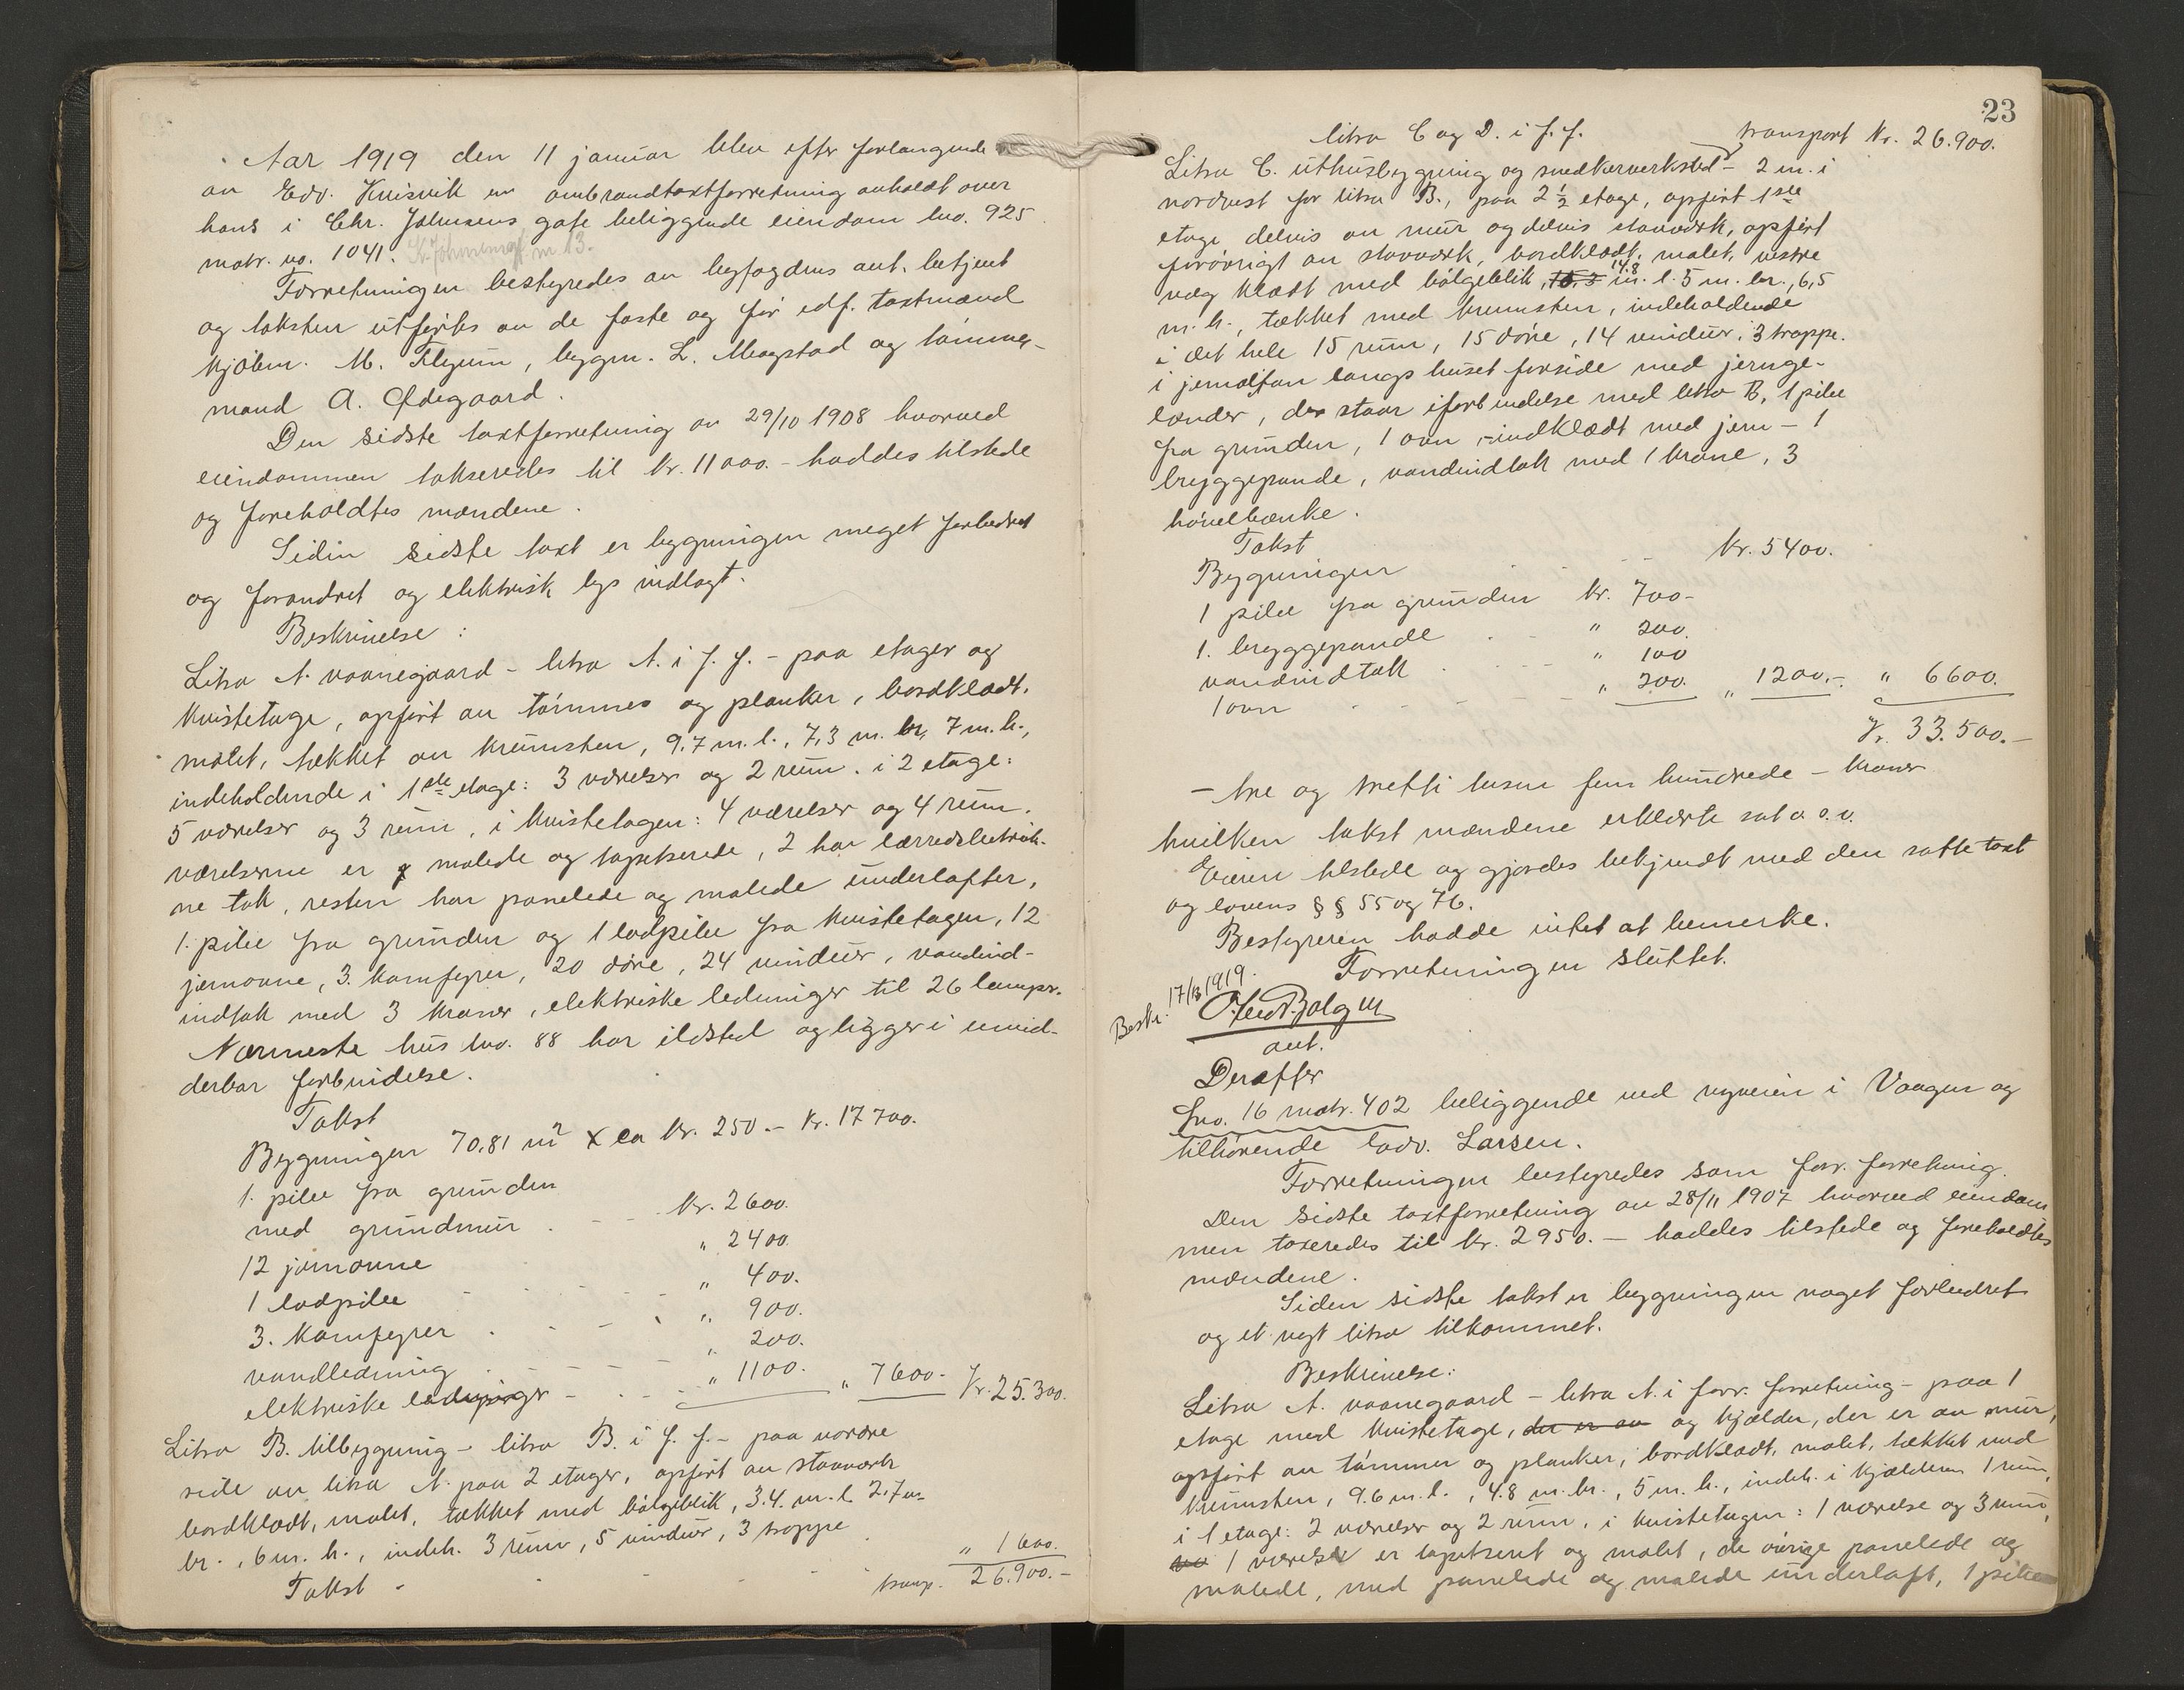 Aar 1919 den 11 januar blev efter forlangende
av Edv. Knisvik en ombrandtaxtforretning avholdt over
hans i Chr. Johnsens gate beliggende eiendom bno. 925
matr. no. 1041. K. Johnsensgt. nr 13.
Forretningen bestyredes av byfogdens aut. betjent
og taksten utførtes av de faste og før edf. taxtmænd
kjøbm. M. Flyum, bygm. L. Magstad og tømmer-
mand A. Ødegaard.
Den sidste taxtforretning av 29/10 1908 hvorved
eiendommen takseredes til kr. 11000.- haddes tilstede
og foreholdtes mændene.
Siden sidste taxt er bygningen meget forbedret
og forandret og elektrisk lys indlagt.
Beskrivelse :
Litra A. vaanegaard - litra A. i f. f. - paa etager og
kvistetage, opført av tømmer og planker, bordklædt,
malet, tækket av krumsten, 9,7 m. l., 7,3 m. br, 7 m. h.,
indeholdende i 1ste etage: 3 værelser og 2 rum. i 2 etage:
5 værelser og 3 rum, i kvistetagen: 4 værelser og 4 rum.
værelserne er malede og tapetserede, 2 har lærredsbetruk-
ne tak, resten har panelede og malede underlofter,
1. pibe fra grunden og 1 lodpibe fra kvistetagen, 12
jernovne, 3. komfyrer, 20 døre, 24 vinduer, vandind-
indtak med 3 kraner, elektriske ledninger til 26 lamper.
Nærmeste hus bno. 88 har ildsted og ligger i umid-
derbar forbindelse.
Takst
Bygningen 70.81 m² x ca kr. 250.- Kr. 17700.
1. pibe fra grunden
med grundmur . - - kr. 2600.
12 jernovne " 2400.
1 lodpibe - - - - " 400.
3. komfyrer . - - . " 900.
vandledning . - - - - " 200.
elektriske ledninger - - - - " 1100. " 7600.- Kr. 25.300.
Litra B. tilbygning - litra B. i f. f. - paa nordre
side av litra A. paa 2 etager, opført av stavverk
bordklædt, malet, tækket med bølgeblik, 3.4. m. l. 2.7 m.
br., 6 m. h., indeh. 3 rum, 5 vinduer, 3 trappe
Takst - - - - " 1600.
transp. 26.900.-
23
litra C og D. i f. f. transport Kr. 26.900.
Litra C. uthusbygning og snedkerverksted - 2 m. i
nordvest for litra B., paa 2 1/2 etage, opført 1ste
etage delvis av mur og delvis stavverk, opført
forøvrigt av stavverk, bordklædt, malet, vestre
væg klædt med bølgeblik, 14.8 m. l. 5 m. br., 6,5
m. h., tækket med krumsten, indeholdende
i det hele 15 rum, 15 døre, 14 vinduer, 3 trappe.
i jernaltan langs huset forside med jernge-
lænder, der staar i forbindelse med litra B, 1 pibe
fra grunden, 1 ovn - indklædt med jern - 1
bryggepande, vandindtak med 1 krane, 3
høvelbænke.
Takst
Bygningen - - - Kr. 5400.
1 pibe fra grunden kr. 700-
1. bryggepande - - " 200.
vandindtak . - - - " 100
1 ovn - - - - - " 200. " 1200.- " 6600.
Kr. 33.500.-
- tre og tretti tusen fem hundrede - kroner
hvilken takst mændene erklærte sat o. s. v.
Eieren tilstede og gjordes bekjendt med den satte taxt
og lovens § § 55 og 76.
Bestyreren hadde intet at bemerke.
Forretningen sluttet.
Beskr. 17/1 1919.
aut.
Derefter
bno. 16 matr. 402 beliggende ved nyveien i Vaagen og
tilhørende Edv. Larsen.
Forretningen bestyredes som forr. forretning.
Den sidste taxtforretning av 28/11 1907 hvorved eiendom
men taxeredes til kr. 2950.- haddes tilstede og foreholdtes
mændene.
Siden sidste takst er bygningen noget forbedret
og et nyt litra tilkommet.
Beskrivelse:
Litra A. vaanegaard - litra A. i forr. forretning - paa 1
etage med kvistetage, der er av og kjælder, der er av mur,
opført av tømmer og planker, bordklædt, malet, tækket med
krumsten, 9.6 m. l., 4.8 m. br., 5 m. h., indeh. i kjælderen 1 rum,
i 1 etage: 2 værelser og 2 rum, i kvistetagen: 1 værelse og 3 rum,
1 værelse er tapetseret og malet, de øvrige panelede og
malede, med panelede og malede underloft, 1 pibe